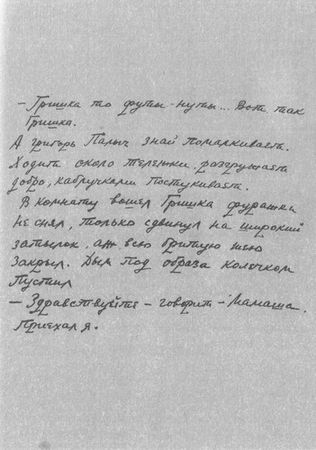 — Гришка то футы-нуты... Вот так
Гришка.
А григорь Палыч знай помалкивает.
Ходит около тележки разгружает
добро, каблучками постукивает.
В комнату вошел Гришка фуражки
не снял, только сдвинул на широкий
затылок, аж всю бритую шею
закрыл. Дым под образа колечком
пустил
— Здравствуйте — говорит — Мамаша.
Приехал я.